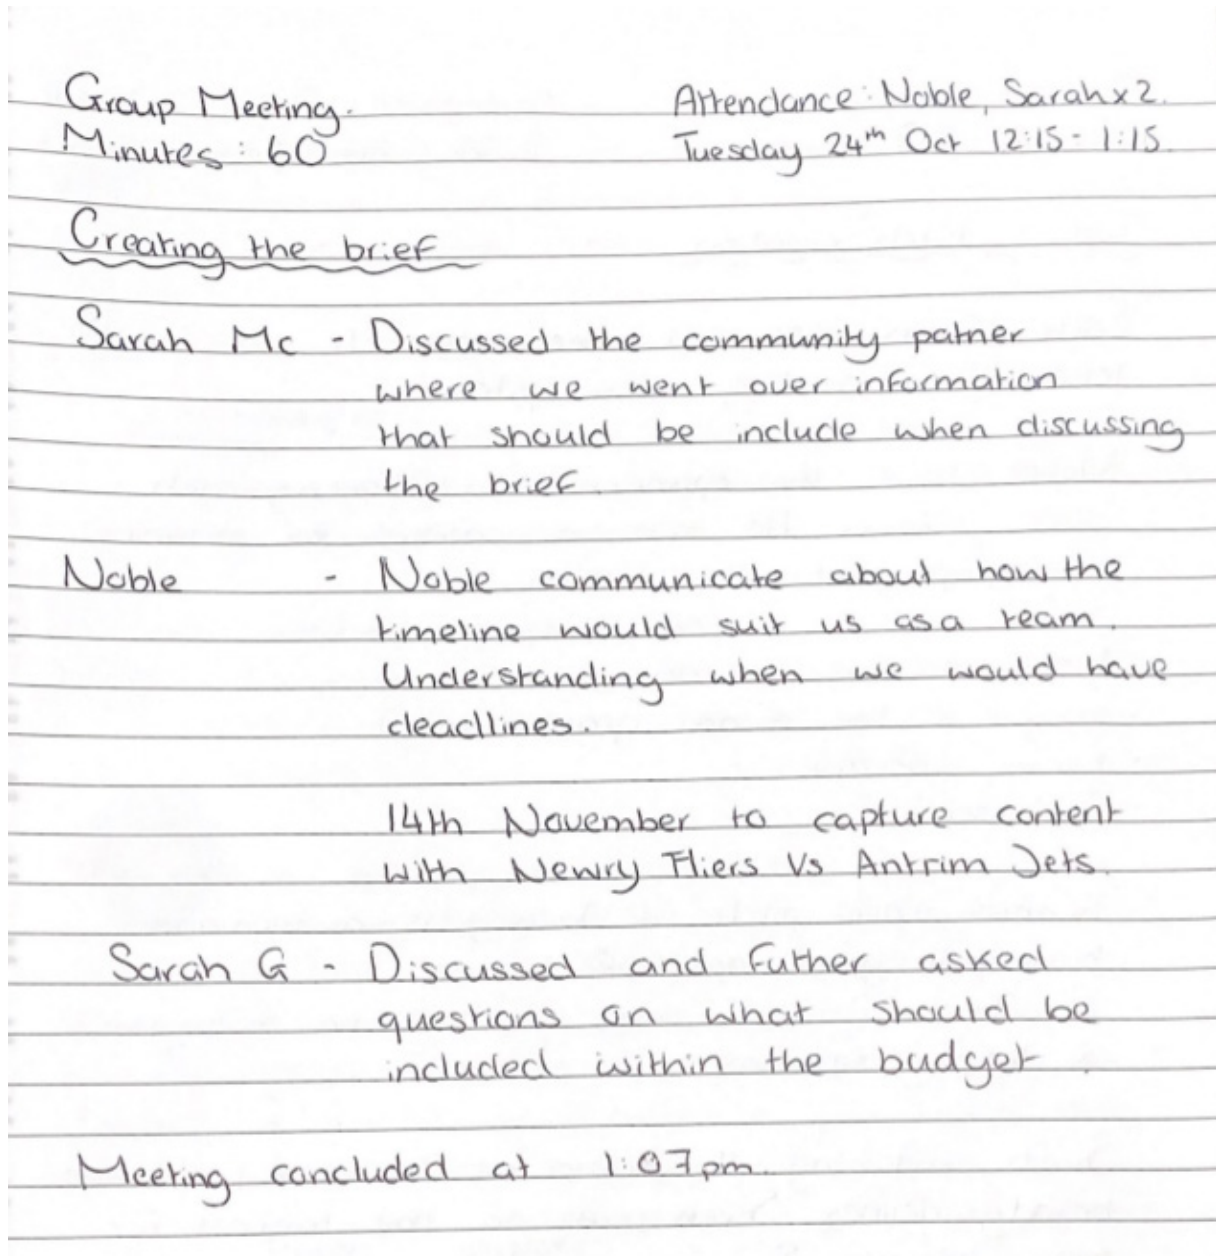 Group Meeting.
Attendance: Noble, Sarah x 2.
Minutes: 60
Tuesday 24th Oct 12:15 - 1:15.
Creating the brief
Sarah Mc - Discussed the community patner
where we went over information
that should be include when discussing
the brief.
Noble - Noble communicate about how the
timeline would suit us as a team.
Understanding when we would have
deadllines.
14th November to capture content
with Newry Fliers Vs Antrim Jets.
Sarah G - Discussed and futher asked
questions on what should be
included within the budget.
Meeting concluded at 1:07pm.